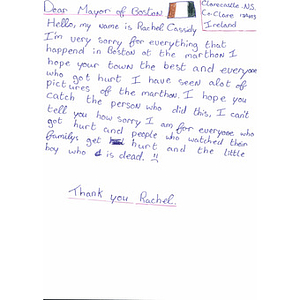 Dear Mayor of Boston
Clarecastle .N.S.
Co.Clare
Ireland
Hello, my name is Rachel Cassidy
I'm very sorry for everything that
happend in Boston at the marthon I
hope your town the best and everyone
who got hurt I have seen alot of
pictures of the marthon. I hope you
catch the person who did this, I can't
tell you how sorry I am for everyone who
got hurt and people who watched their
familys get hurt and the little
boy who is dead. !!
Thank you Rachel.